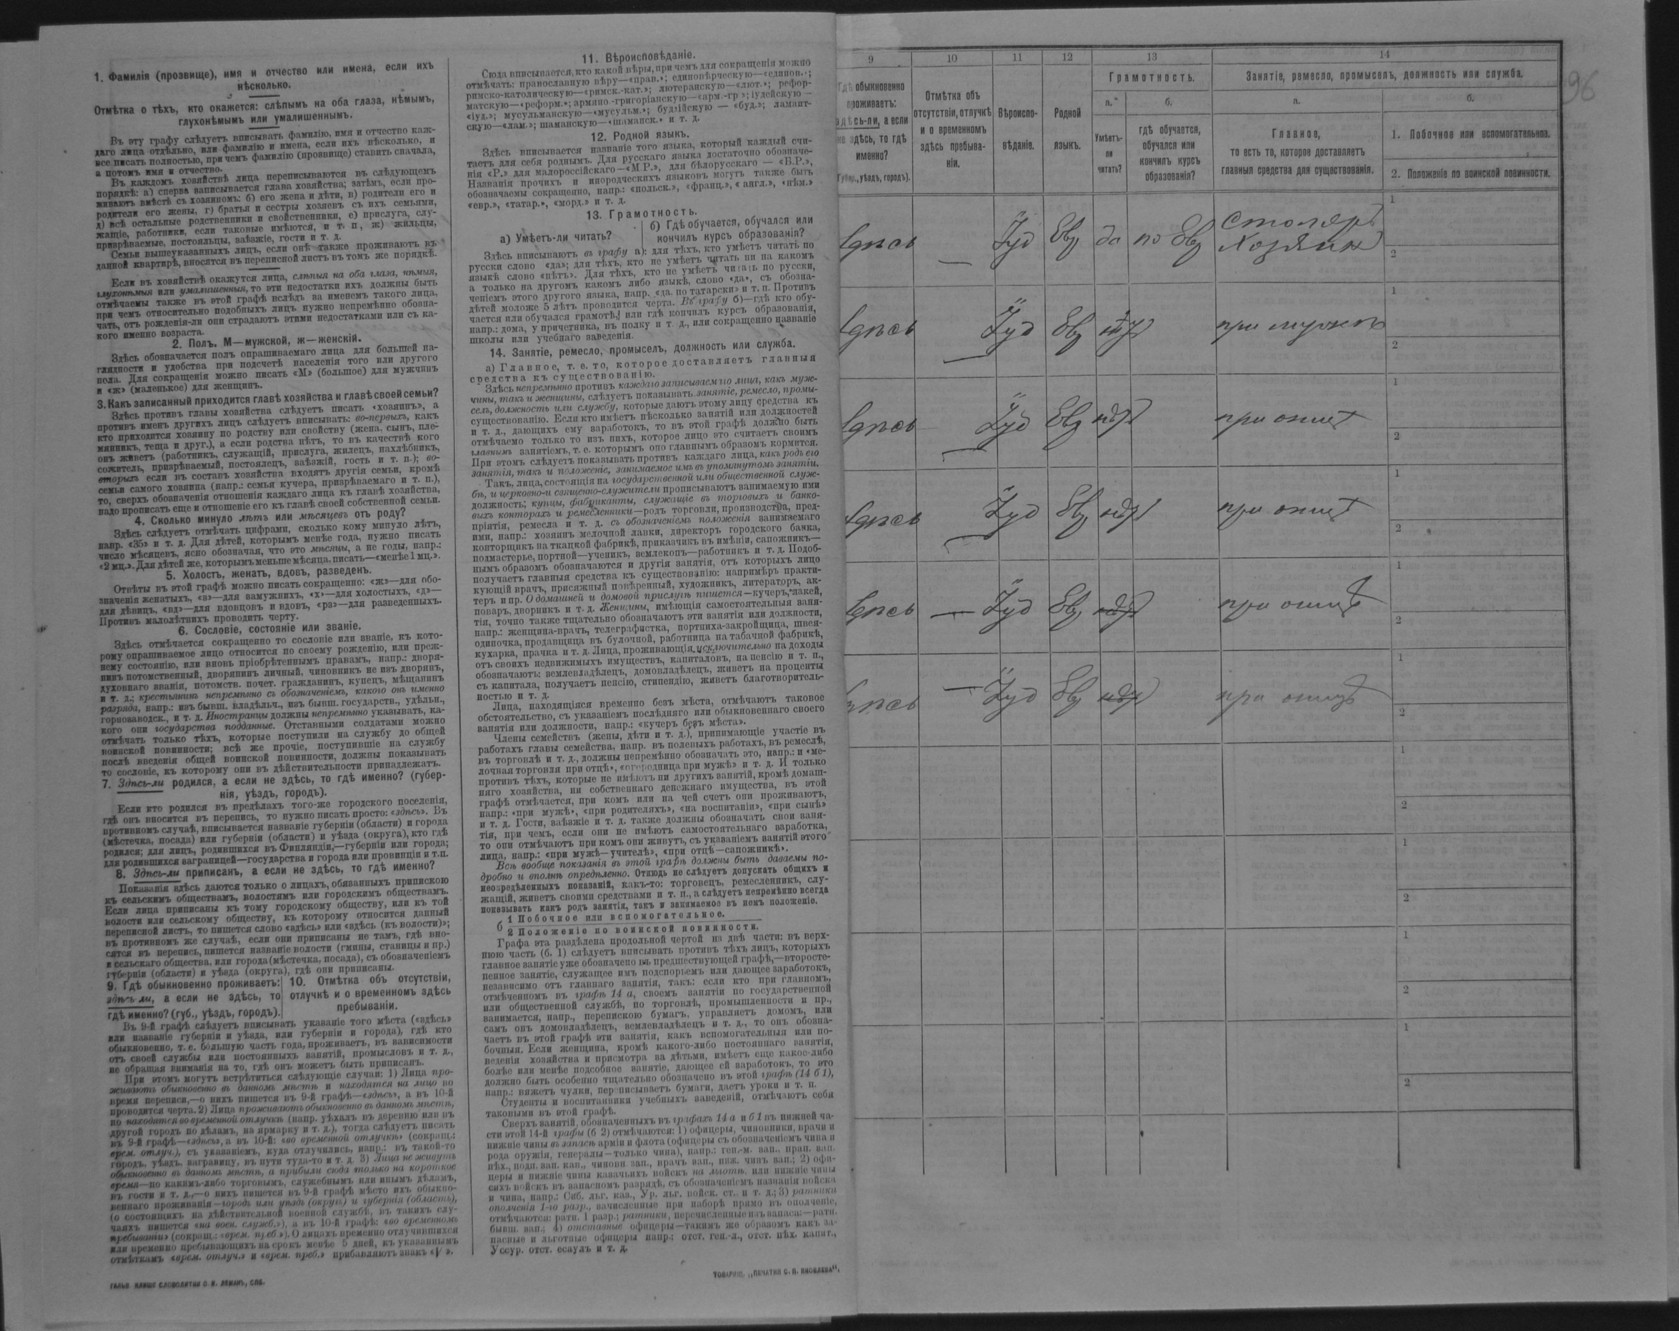 1. Фамилія (прозвище), имя и отчество или имена, если ихъ
нѣсколько.
Отмѣтка о тѣхъ, кто окажется: слѣпымъ на оба глаза, нѣмымъ,
глухонѣмымъ или умалишеннымъ.
Въ эту графу слѣдуетъ вписывать фамилію, имя и отчество каж-
даго лица отдѣльно, или фамилію и имена, если ихъ нѣсколько, и
все писать полностью, при чемъ фамилію (прозвище) ставить сначала,
а потомъ имя и отчество.
Въ каждомъ хозяйствѣ лица переписываются въ слѣдующемъ
порядкѣ: а) сперва записывается глава хозяйства; затѣмъ, если про-
живаютъ вмѣстѣ съ хозяиномъ: б) его жена и дѣти, в) родители его и
родители его жены, г) братья и сестры хозяевъ съ ихъ семьями,
д) всѣ остальные родственники и свойственники, е) прислуга, слу-
жащіе, работники, если таковые имѣются, и т. п., ж) жильцы,
призрѣваемые, постояльцы, заѣзжіе, гости и т. д.
Семьи вышеуказанныхъ лицъ, если онѣ также проживаютъ въ
данной квартирѣ, вносятся въ переписной листъ въ томъ же порядкѣ.
Если въ хозяйствѣ окажутся лица, слѣпыя на оба глаза, нѣмыя,
глухонѣмыя или умалишенныя, то эти недостатки ихъ должны быть
отмѣчаемы также въ этой графѣ вслѣдъ за именемъ такого лица,
при чемъ относительно подобныхъ лицъ нужно непремѣнно обозна-
чать, отъ рожденія-ли они страдаютъ этими недостатками или съ ка-
кого именно возраста.
2. Полъ. М—мужской, ж—женскій.
Здѣсь обозначается полъ опрашиваемаго лица для большей на-
глядности и удобства при подсчетѣ населенія того или другого
пола. Для сокращенія можно писать «М» (большое) для мужчинъ
и «ж» (маленькое) для женщинъ.
3. Какъ записанный приходится главѣ хозяйства и главѣ своей семьи?
Здѣсь противъ главы хозяйства слѣдуетъ писать «хозяинъ», а
противъ именъ другихъ лицъ слѣдуетъ вписывать: во-первыхъ, какъ
кто приходится хозяину по родству или свойству (жена, сынъ, пле-
мянникъ, теща и друг.), а если родства нѣтъ, то въ качествѣ кого
онъ живетъ (работникъ, служащій, прислуга, жилецъ, нахлѣбникъ,
сожитель, призрѣваемый, постоялецъ, заѣзжій, гость и т. п.); во-
вторыхъ если въ составъ хозяйства входятъ другія семьи, кромѣ
семьи самого хозяина (напр.: семья кучера, призрѣваемаго и т. п.),
то, сверхъ обозначенія отношенія каждаго лица къ главѣ хозяйства,
надо прописать еще и отношеніе его къ главѣ своей собственной семьи.
4. Сколько минуло лѣтъ или мѣсяцевъ отъ роду?
Здѣсь слѣдуетъ отмѣчать цифрами, сколько кому минуло лѣтъ,
напр. «35» и т. д. Для дѣтей, которымъ менѣе года, нужно писать
число мѣсяцевъ, ясно обозначая, что это мѣсяцы, а не годы, напр.:
«2 мц.». Для дѣтей же, которымъ меньше мѣсяца, писать—«менѣе 1 мц.».
5. Холостъ, женатъ, вдовъ, разведенъ.
Отвѣты въ этой графѣ можно писать сокращенно: «ж»—для обо-
значенія женатыхъ, «з»—для замужнихъ, «х»—для холостыхъ, «д»—
для дѣвицъ, «вд»—для вдовцовъ и вдовъ, «ра»—для разведенныхъ.
Противъ малолѣтнихъ проводить черту.
6. Сословіе, состояніе или званіе.
Здѣсь отмѣчается сокращенно то сословіе или званіе, къ кото-
рому опрашиваемое лицо относится по своему рожденію, или преж-
нему состоянію, или вновь пріобрѣтеннымъ правамъ, напр.: дворя-
нинъ потомственный, дворянинъ личный, чиновникъ не изъ дворянъ,
духовнаго званія, потомств. почет. гражданинъ, купецъ, мѣщанинъ
и т. д.; крестьянинъ непремѣнно съ обозначеніемъ, какого онъ именно
разряда, напр.: изъ бывш. владѣльч., изъ бывш. государств., удѣльн.,
горнозаводск., и т. д. Иностранцы должны непремѣнно указывать, ка-
кого они государства подданные. Отставными солдатами можно
отмѣчать только тѣхъ, которые поступили на службу до общей
воинской повинности; всѣ же прочіе, поступившіе на службу
послѣ введенія общей воинской повинности, должны показывать
то сословіе, къ которому они въ дѣйствительности принадлежатъ.
7. Здѣсь-ли родился, а если не здѣсь, то гдѣ именно? (губер-
нія, уѣздъ, городъ).
Если кто родился въ предѣлахъ того-же городского поселенія,
гдѣ онъ вносится въ перепись, то нужно писать просто: «здѣсь». Въ
противномъ случаѣ, вписывается названіе губерніи (области) и города
(мѣстечка, посада) или губерніи (области) и уѣзда (округа), кто гдѣ
родился; для лицъ, родившихся въ Финляндіи,—губерніи или города;
для родившихся заграницей—государства и города или провинціи и т.п.
8. Здѣсь-ли приписанъ, а если не здѣсь, то гдѣ именно?
Показанія здѣсь даются только о лицахъ, обязанныхъ припискою
къ сельскимъ обществамъ, волостямъ или городскимъ обществамъ.
Если лица приписаны къ тому городскому обществу, или къ той
волости или сельскому обществу, къ которому относится данный
переписной листъ, то пишется слово «здѣсь» или «здѣсь (къ волости)»;
въ противномъ же случаѣ, если они приписаны не тамъ, гдѣ вно-
сятся въ перепись, пишется названіе волости (гмины, станицы и пр.)
и сельскаго общества, или города (мѣстечка, посада), съ обозначеніемъ
губерніи (области) и уѣзда (округа), гдѣ они приписаны.
9. Гдѣ обыкновенно проживаетъ:
здѣсь-ли, а если не здѣсь, то
гдѣ именно? (губ., уѣздъ, городъ).
10. Отмѣтка объ отсутствіи,
отлучкѣ и о временномъ здѣсь
пребываніи.
Въ 9-й графѣ слѣдуетъ вписывать указаніе того мѣста («здѣсь»
или названіе губерніи и уѣзда, или губерніи и города), гдѣ кто
обыкновенно, т. е. большую часть года, проживаетъ, въ зависимости
отъ своей службы или постоянныхъ занятій, промысловъ и т. д.,
не обращая вниманія на то, гдѣ онъ можетъ быть приписанъ.
При этомъ могутъ встрѣтиться слѣдующіе случаи: 1) Лица про-
живаютъ обыкновенно въ данномъ мѣстѣ и находятся на лицо во
время переписи,—о нихъ пишется въ 9-й графѣ—«здѣсь», а въ 10-й
проводится черта. 2) Лица проживаютъ обыкновенно въ данномъ мѣстѣ,
но находятся во временной отлучкѣ (напр. уѣхалъ въ деревню или въ
другой городъ по дѣламъ, на ярмарку и т. д.), тогда слѣдуетъ писать
въ 9-й графѣ—«здѣсь», а въ 10-й: «во временной отлучкѣ» (сокращ.:
врем. отлуч.), съ указаніемъ, куда отлучились, напр.: въ такой-то
городъ, уѣздъ, заграницу, въ пути туда-то и т. д. 3) Лица не живутъ
обыкновенно въ данномъ мѣстѣ, а прибыли сюда только на короткое
время—по какимъ-либо торговымъ, служебнымъ или инымъ дѣламъ,
въ гости и т. д.,—о нихъ пишется въ 9-й графѣ мѣсто ихъ обыкно-
веннаго проживанія—городъ или уѣздъ (округъ) и губернія (область),
(о состоящихъ на дѣйствительной военной службѣ, въ такихъ слу-
чаяхъ пишется «на воен. службѣ»), а въ 10-й графѣ: «во временномъ
пребываніи» (сокращ.: «врем. преб.»). О лицахъ временно отлучившихся
или временно пребывающихъ на срокъ менѣе 5 дней, къ указаннымъ
отмѣткамъ «врем. отлуч.» и «врем. преб.» прибавляютъ знакъ «V».
11. Вѣроисповѣданіе.
Сюда вписывается, кто какой вѣры, при чемъ для сокращенія можно
отмѣчать: православную вѣру—«прав.»; единовѣрческую—«единов.»;
римско-католическую—«римск.-кат.»; лютеранскую—«лют.»; рефор-
матскую—«реформ.»; армяно-григоріанскую—«арм.-гр.»; іудейскую—
«іуд.»; мусульманскую—«мусульм.»; буддійскую — «буд.»; ламаит-
скую—«лам.»; шаманскую—«шаманск.» и т. д.
12. Родной языкъ.
Здѣсь вписывается названіе того языка, который каждый счи-
таетъ для себя роднымъ. Для русскаго языка достаточно обозначе-
нія «Р.», для малороссійскаго—«М.Р.», для бѣлорусскаго — «Б.Р.»,
Названія прочихъ и инородческихъ языковъ могутъ также быть
обозначаемы сокращенно, напр.: «польск.», «франц.», «англ.», «нѣм.»
«евр.», «татар.», «морд.» и т. д.
13. Грамотность.
а) Умѣетъ-ли читать?
б) Гдѣ обучается, обучался или
кончилъ курсъ образованія?
Здѣсь вписываютъ въ графу а): для тѣхъ, кто умѣетъ читать по
русски слово «да»; для тѣхъ, кто не умѣетъ читать ни на какомъ
языкѣ слово «нѣтъ». Для тѣхъ, кто не умѣетъ читать по русски,
а только на другомъ какомъ либо языкѣ, слово «да», съ обозна-
ченіемъ этого другого языка, напр. «да. по татарски» и т. п. Противъ
дѣтей моложе 5 лѣтъ проводится черта. Въ графу б)—гдѣ кто обу-
чается или обучался грамотѣ, или гдѣ кончилъ курсъ образованія,
напр.: дома, у причетника, въ полку и т. д., или сокращенно названіе
школы или учебнаго заведенія.
14. Занятіе, ремесло, промыселъ, должность или служба.
а) Главное, т. е. то, которое доставляетъ главныя
средства къ существованію.
Здѣсь непремѣнно противъ каждаго записываемаго лица, какъ муж-
чины, такъ и женщины, слѣдуетъ показывать занятіе, ремесло, промы-
селъ, должность или службу, которые даютъ этому лицу средства къ
существованію. Если кто имѣетъ нѣсколько занятій или должностей
и т. д., дающихъ ему заработокъ, то въ этой графѣ должно быть
отмѣчаемо только то изъ нихъ, которое лицо это считаетъ своимъ
главнымъ занятіемъ, т. е. которымъ оно главнымъ образомъ кормится.
При этомъ слѣдуетъ показывать противъ каждаго лица, какъ родъ его
занятія, такъ и положеніе, занимаемое имъ въ упомянутомъ занятіи.
Такъ, лица, состоящія на государственной или общественной служ-
бѣ, и церковно-и священно-служители прописываютъ занимаемую ими
должность; купцы, фабриканты, служащіе въ торговыхъ и банко-
выхъ конторахъ и ремесленники—родъ торговли, производства, пред-
пріятія, ремесла и т. д. съ обозначеніемъ положенія занимаемаго
ими, напр.: хозяинъ мелочной лавки, директоръ городского банка,
конторщикъ на ткацкой фабрикѣ, приказчикъ въ имѣніи, сапожникъ—
подмастерье, портной—ученикъ, землекопъ—работникъ и т. д. Подоб-
нымъ образомъ обозначаются и другія занятія, отъ которыхъ лицо
получаетъ главныя средства къ существованію: напримѣръ практи-
кующій врачъ, присяжный повѣренный, художникъ, литераторъ, ак-
теръ и пр. О домашней и домовой прислугѣ пишется—кучеръ, лакей,
поваръ, дворникъ и т. д. Женщины, имѣющія самостоятельныя заня-
тія, точно также тщательно обозначаютъ эти занятія или должности,
напр.: женщина-врачъ, телеграфистка, портниха-закройщица, швея-
одиночка, продавщица въ булочной, работница на табачной фабрикѣ,
кухарка, прачка и т. д. Лица, проживающія, исключительно на доходы
отъ своихъ недвижимыхъ имуществъ, капиталовъ, на пенсію и т. п.,
обозначаютъ: землевладѣлецъ, домовладѣлецъ, живетъ на проценты
съ капитала, получаетъ пенсію, стипендію, живетъ благотворитель-
ностью и т. д.
Лица, находящіяся временно безъ мѣста, отмѣчаютъ таковое
обстоятельство, съ указаніемъ послѣдняго или обыкновеннаго своего
занятія или должности, напр.: «кучеръ безъ мѣста».
Члены семействъ (жены, дѣти и т. д.), принимающіе участіе въ
работахъ главы семейства, напр. въ полевыхъ работахъ, въ ремеслѣ,
въ торговлѣ и т. д., должны непремѣнно обозначать это, напр.: и «ме-
лочная торговля при отцѣ», «огородница при мужѣ» и т. д. И только
противъ тѣхъ, которые не имѣютъ ни другихъ занятій, кромѣ домаш-
няго хозяйства, ни собственнаго денежнаго имущества, въ этой
графѣ отмѣчается, при комъ или на чей счетъ они проживаютъ,
напр.: «при мужѣ», «при родителяхъ», «на воспитаніи», «при сынѣ»
и т. д. Гости, заѣзжіе и т. д. также должны обозначать свои заня-
тія, при чемъ, если они не имѣютъ самостоятельнаго заработка,
то они отмѣчаютъ при комъ они живутъ, съ указаніемъ занятій этого
лица, напр.: «при мужѣ—учителѣ», «при отцѣ—сапожникѣ».
Всѣ вообще показанія въ этой графѣ должны быть даваемы по-
дробно и вполнѣ опредѣленно. Отнюдь не слѣдуетъ допускать общихъ и
неопредѣленныхъ показаній, какъ-то: торговецъ, ремесленникъ, слу-
жащій, живетъ своими средствами и т. п., а слѣдуетъ непремѣнно всегда
показывать какъ родъ занятія, такъ и занимаемое въ немъ положеніе.
б
1 Побочное или вспомогательное.
2 Положеніе по воинской повинности.
Графа эта раздѣлена продольной чертой на двѣ части: въ верх-
нюю часть (б. 1) слѣдуетъ вписывать противъ тѣхъ лицъ, которыхъ
главное занятіе уже обозначено въ предшествующей графѣ,—второсте-
пенное занятіе, служащее имъ подспорьемъ или дающее заработокъ,
независимо отъ главнаго занятія, такъ: если кто при главномъ,
отмѣченномъ въ графѣ 14 а, своемъ занятіи по государственной
или общественной службѣ, по торговлѣ, промышленности и пр.,
занимается, напр., перепискою бумагъ, управляетъ домомъ, или
самъ онъ домовладѣлецъ, землевладѣлецъ и т. д., то онъ обозна-
чаетъ въ этой графѣ эти занятія, какъ вспомогательныя или по-
бочныя. Если женщина, кромѣ какого-либо постояннаго занятія,
веденія хозяйства и присмотра за дѣтьми, имѣетъ еще какое-либо
болѣе или менѣе подсобное занятіе, дающее ей заработокъ, то это
должно быть особенно тщательно обозначено въ этой графѣ (14 б 1),
напр.: вяжетъ чулки, переписываетъ бумаги, даетъ уроки и т. п.
Студенты и воспитанники учебныхъ заведеній, отмѣчаютъ себя
таковыми въ этой графѣ.
Сверхъ занятій, обозначенныхъ въ графахъ 14 а и б 1 въ нижней ча-
сти этой 14-й графы (б 2) отмѣчаются: 1) офицеры, чиновники, врачи и
нижніе чины въ запасѣ арміи и флота (офицеры съ обозначеніемъ чина и
рода оружія, генералы—только чина), напр.: ген.-м. зап., прап. зап.
пѣх., подп. зап. кав., чиновн. зап., врачъ зап., ниж. чинъ зап.; 2) офи-
церы и нижніе чины казачьихъ войскъ на льготѣ или нижніе чины
сихъ войскъ въ запасномъ разрядѣ, съ обозначеніемъ названія войска
и чина, напр.: Сиб. льг. каз., Ур. льг. войск. ст. и т. д.; 3) ратники
ополченія 1-го разр., зачисленные при наборѣ прямо въ ополченіе,
отмѣчаются: ратн. 1 разр.; ратники, перечисленные изъ запаса:—ратн.
бывш. зап.; 4) отставные офицеры—такимъ же образомъ какъ за-
пасные и льготные офицеры напр.: отст. ген.-л., отст. пѣх. капит.,
Уссур. отст. есаулъ и т. д.
ТОВАРИЩ. „ПЕЧАТНЯ С. П. ЯКОВЛЕВА".
96
9 10 11 12 13 14
Гдѣ обыкновенно
проживаетъ:
здѣсь-ли, а если
не здѣсь, то гдѣ
именно?
(Губерн., уѣздъ, городъ).
Отмѣтка объ
отсутствіи, отлучкѣ
и о временномъ
здѣсь пребыва-
ніи.
Вѣроиспо-
вѣданіе.
Родной
языкъ.
Грамотность.
а.
Умѣетъ-
ли
читать?
б.
гдѣ обучается,
обучался или
кончилъ курсъ
образованія?
Занятіе, ремесло, промыселъ, должность или служба.
а.
Главное,
то есть то, которое доставляетъ
главныя средства для существованія.
б.
1. Побочное или вспомогательное.
2. Положеніе по воинской повинности.
здѣсь — Іуд Евр да по Евр Столяръ
Хозяинъ
1
2
здѣсь — Іуд Евр нѣтъ при мужѣ
1
2
здѣсь — Іуд Евр нѣтъ при отцѣ
1
2
здѣсь — Іуд Евр нѣтъ при отцѣ
1
2
здѣсь — Іуд Евр нѣтъ при отцѣ
1
2
здѣсь — Іуд Евр нѣтъ при отцѣ
1
2
1
2
1
2
1
2
1
2